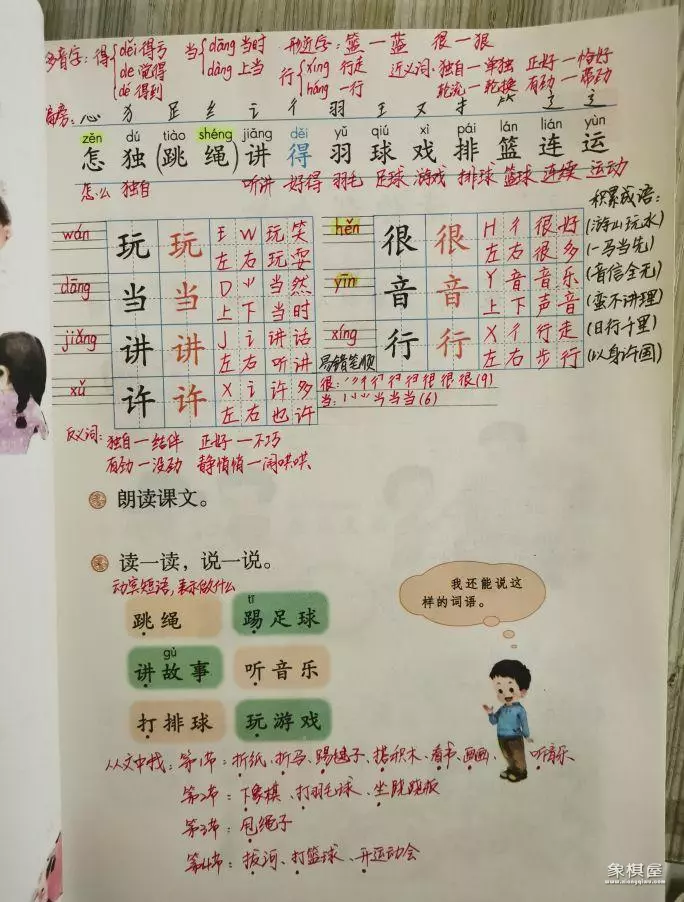 多音字：得 děi 得亏 当 dāng 当时 形近字：篮一蓝 很一狠
de 觉得 dàng 上当 行 xíng 行走 近义词：独自一单独 正好一恰好
dé 得到 háng 一行 轮流一轮换 有劲一带劲
偏旁：心 犭 足 纟 讠 彳 羽 王 又 扌 ⺮ 辶 辶
zěn dú tiào shéng jiǎng děi yǔ qiú xì pái lán lián yùn
怎 独 (跳 绳) 讲 得 羽 球 戏 排 篮 连 运
怎么 独自 听讲 好得 羽毛 足球 游戏 排球 篮球 连续 运动
积累成语：
wán 玩 玩 王 W 玩笑 hěn 很 很 H 彳 很好 (游山玩水)
左右 玩耍 左右 很多 (一马当先)
dāng 当 当 D ⺌ 当然 yīn 音 音 Y 音 音乐 (音信全无)
上下 当时 上下 声音 (蛮不讲理)
jiǎng 讲 讲 J 讠 讲话 xíng 行 行 X 彳 行走 (日行千里)
左右 听讲 左右 步行 (以身许国)
易错笔顺
xǔ 许 许 X 讠 许多 很：(9)
左右 也许 当：(6)
反义词：独自一结伴 正好一不巧
有劲一没劲 静悄悄一闹哄哄
朗读课文。
读一读，说一说。
动宾短语，表示做什么
我还能说这
样的词语。
tī
跳绳 踢足球
gù
讲故事 听音乐
打排球 玩游戏
从文中找：第1节：折纸、折马、踢毽子、搭积木、看书、画画、听音乐
第2节：下象棋、打羽毛球、坐跷跷板
第3节：甩绳子
第4节：拔河、打篮球、开运动会
象棋屋
www.xiangqiwu.com